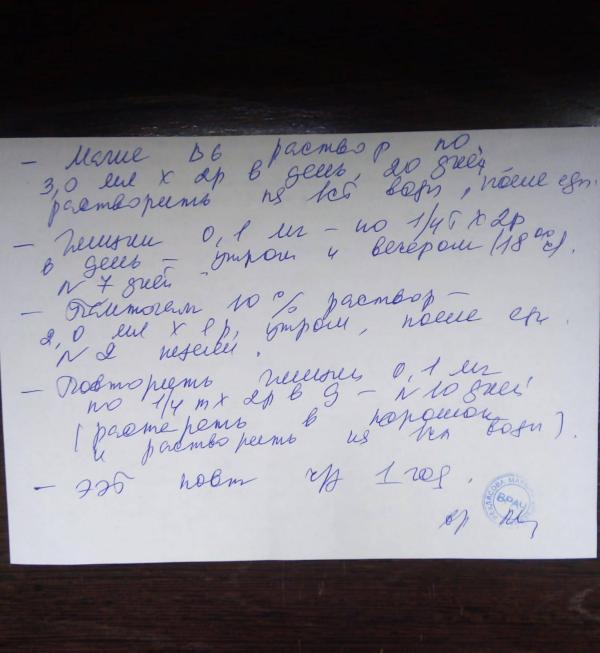 - Магне В6 раствор по
3,0 мл х 2р в день, 20 дней
растворить на 1ст воды, после еды.
- Глицин 0,1 мг - по 1/4т х 2р
в день - утром и вечером (18 00 ч).
N 7 дней
- Пантогам 10% раствор -
2,0 мл х 1р, утром, после еды.
N 2 недели.
- Повторять глицин 0,1 мг
по 1/4 т х 2р в д - N 10 дней
(растереть в порошок
и растворить на 1ст воды).
- ЭЭГ повт ч/з 1 год.
ВРАЧ